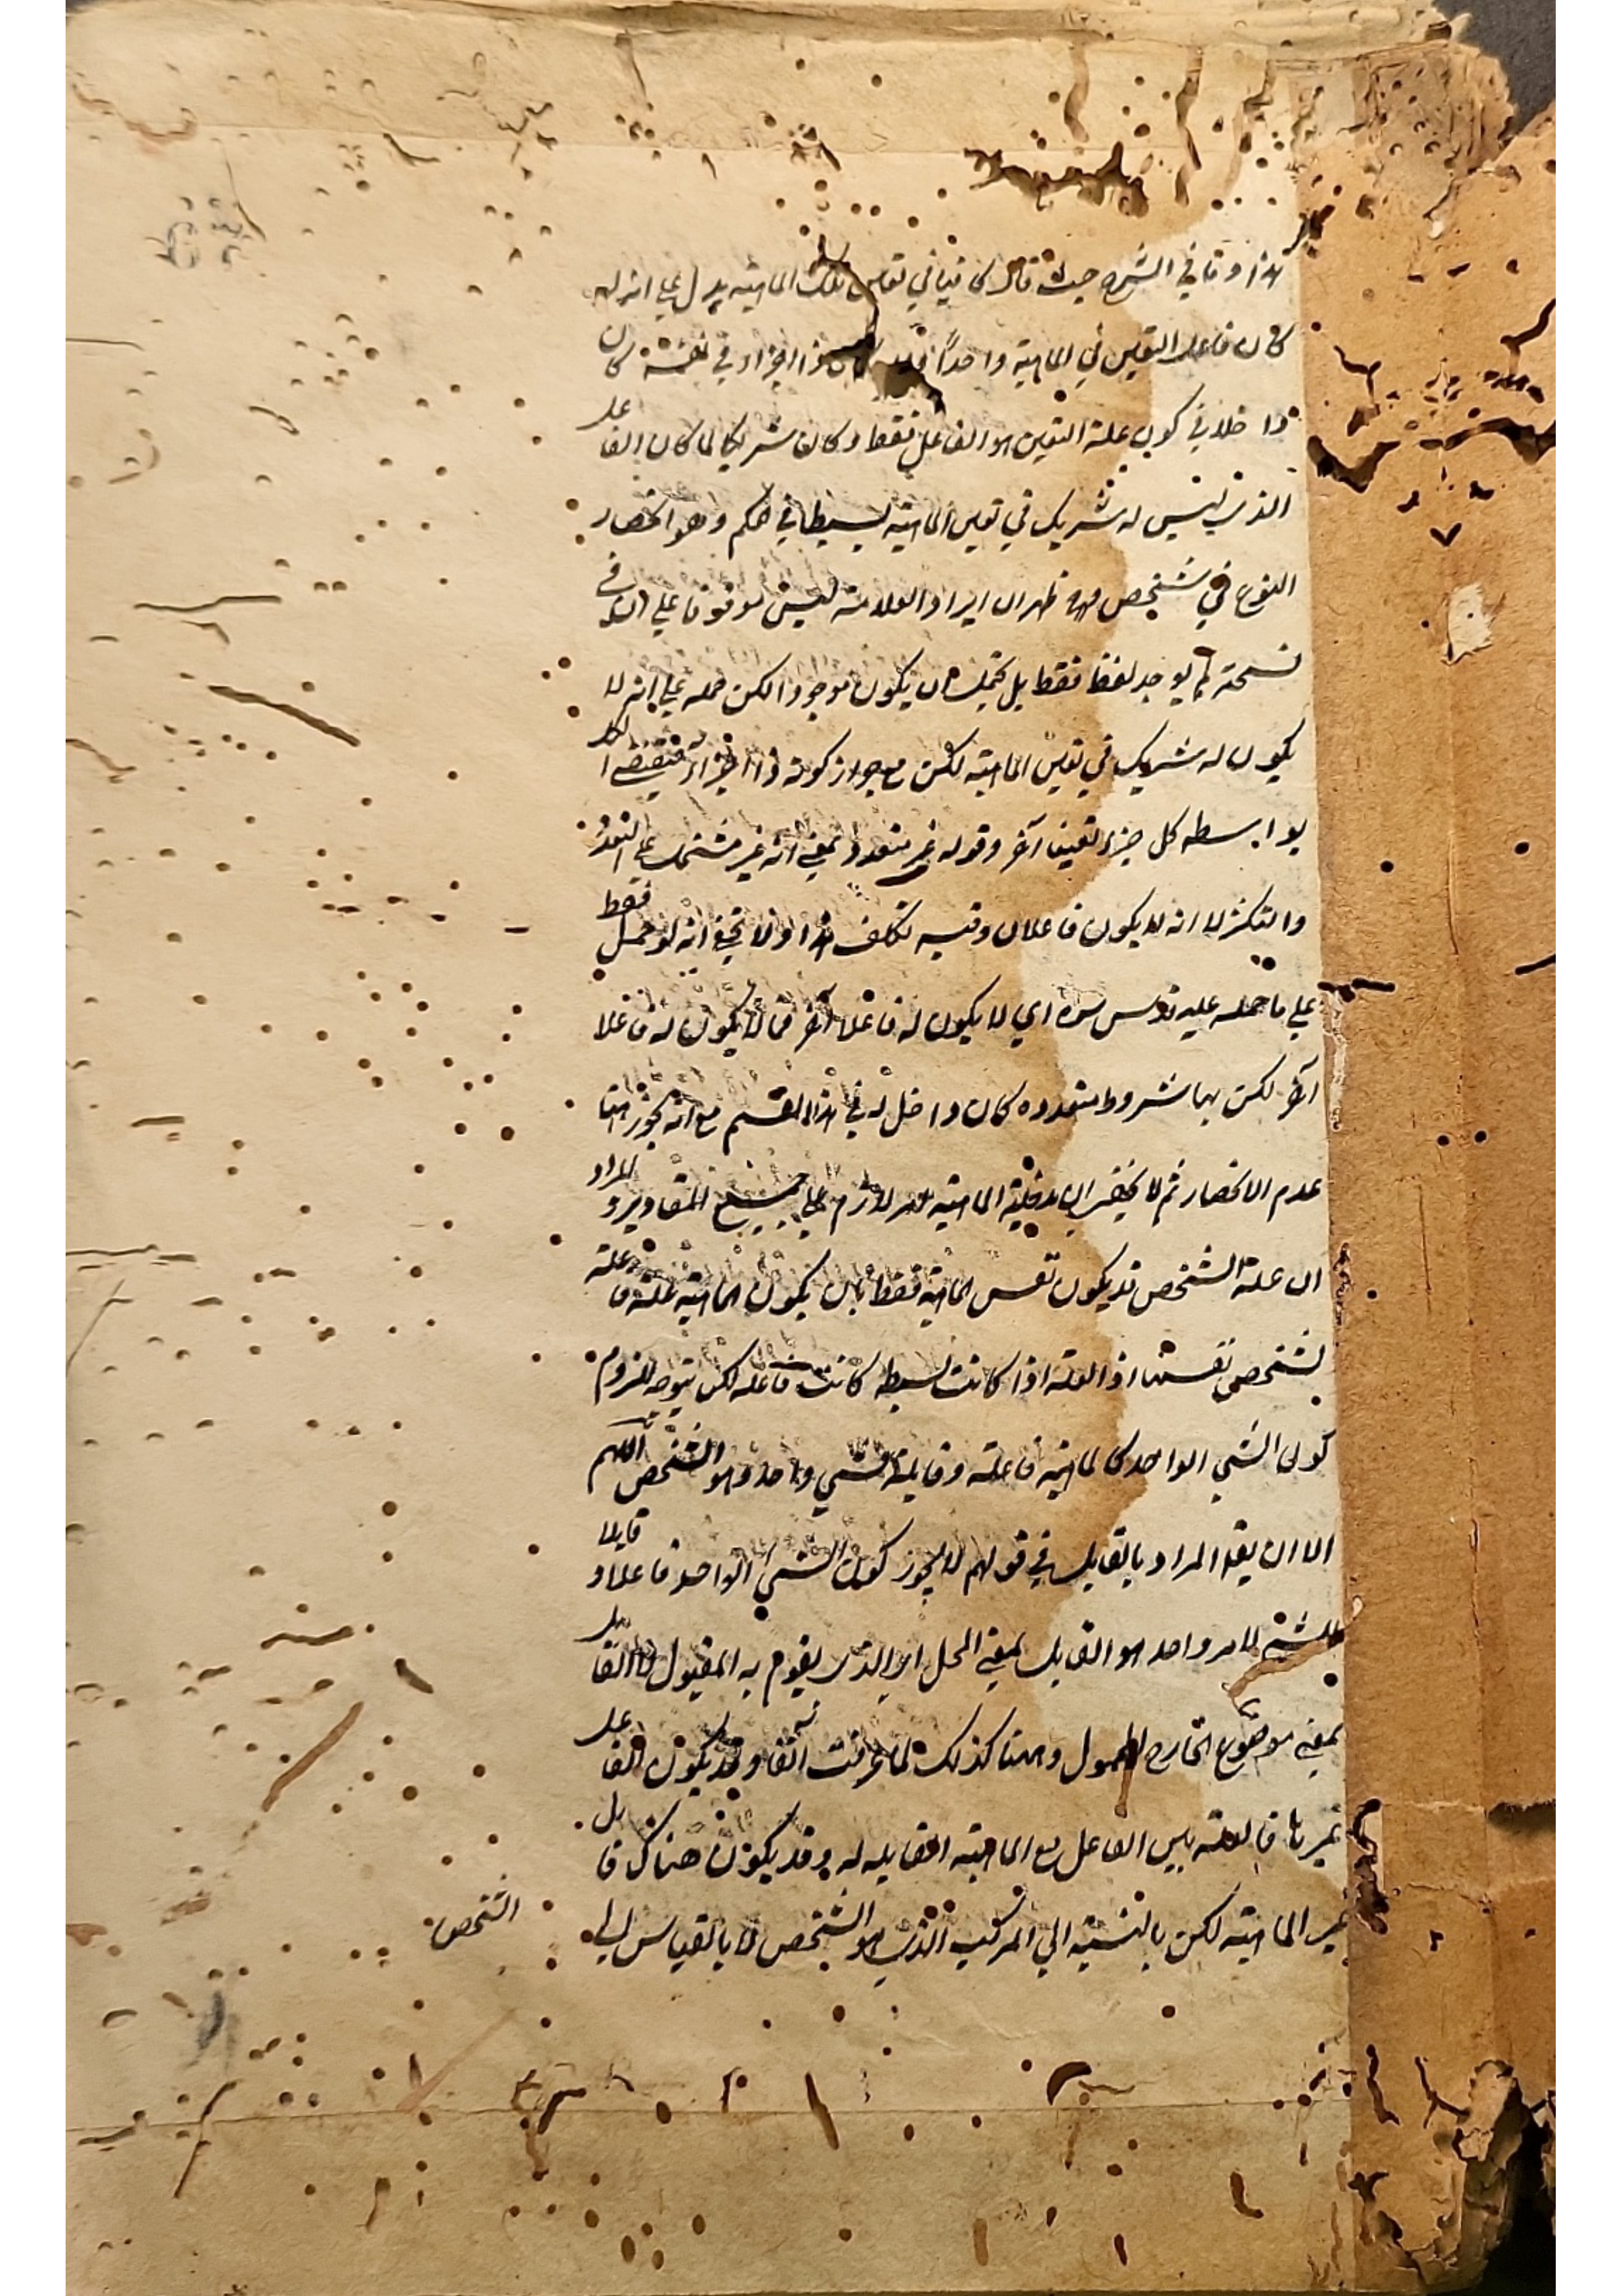 هذا وقا في الشرح حيث قال كافيا في تعين تلك الماهية يدل على انه لو
كان فاعل التعين في الماهية واحدا ذا اجزاء في نفسه كان
داخلا في كون علة التعين هو الفاعل فقط وكان شريكا لما كان الفاعل
الذي ليس له شريك في تعين الماهية بسيطا في الحكم وهو انحصار
النوع في شخص فظهر ان ايراد العلامة ليس موقوفا على ان في
نسخته لم يوجد لفظ فقط بل يحتمل ان يكون موجودا لكن حمله على انه لا
يكون له شريك في تعين الماهية لكن مع جواز كونه ذا اجزاء فيقتضي
بواسطه كل جزء تعينا آخر وقوله غير متعدد بمعنى انه غير مشتمل على التعدد
والتكثر لا انه لا يكون فاعلان وفيه تكلف هذا ولا يخفى انه لو حمل فقط
على ما حمله عليه قدس سره اي لا يكون له فاعلا آخر فما لا يكون له فاعلا
آخر لكن بها شروط متعدده كان داخل له في هذا القسم مع انه يجوز هنا
عدم الانحصار ثم لا يخفى ان مدخلية الماهية امر لازم على جميع التقادير والمراد
ان علة الشخص قد يكون نفس الماهية فقط بان يكون الماهية علة فاعلة
لشخص نفسها اذ العلة اذا كانت بسيطه كانت فاعله لكن يتوجه لزوم
كون الشي الواحد كالماهية فاعلة وقابلة لشي واحد وهو الشخص اللهم
الا ان يقال المراد بالقابل في قولهم لا يجوز كون الشي الواحد فاعلا وقابلا
لامر واحد هو القابل بمعنى المحل اي الذي يقوم به المقبول لا القابل
بمعنى موضوع الخارج المحمول وههنا كذلك لما عرفت آنفا وقد يكون الفاعل
غيرها فالعلة بين الفاعل مع الماهية القابله له وقد يكون هناك قابل
غير الماهية لكن بالنسبة الى المركب الذي هو الشخص لا بالقياس الى
الشخص